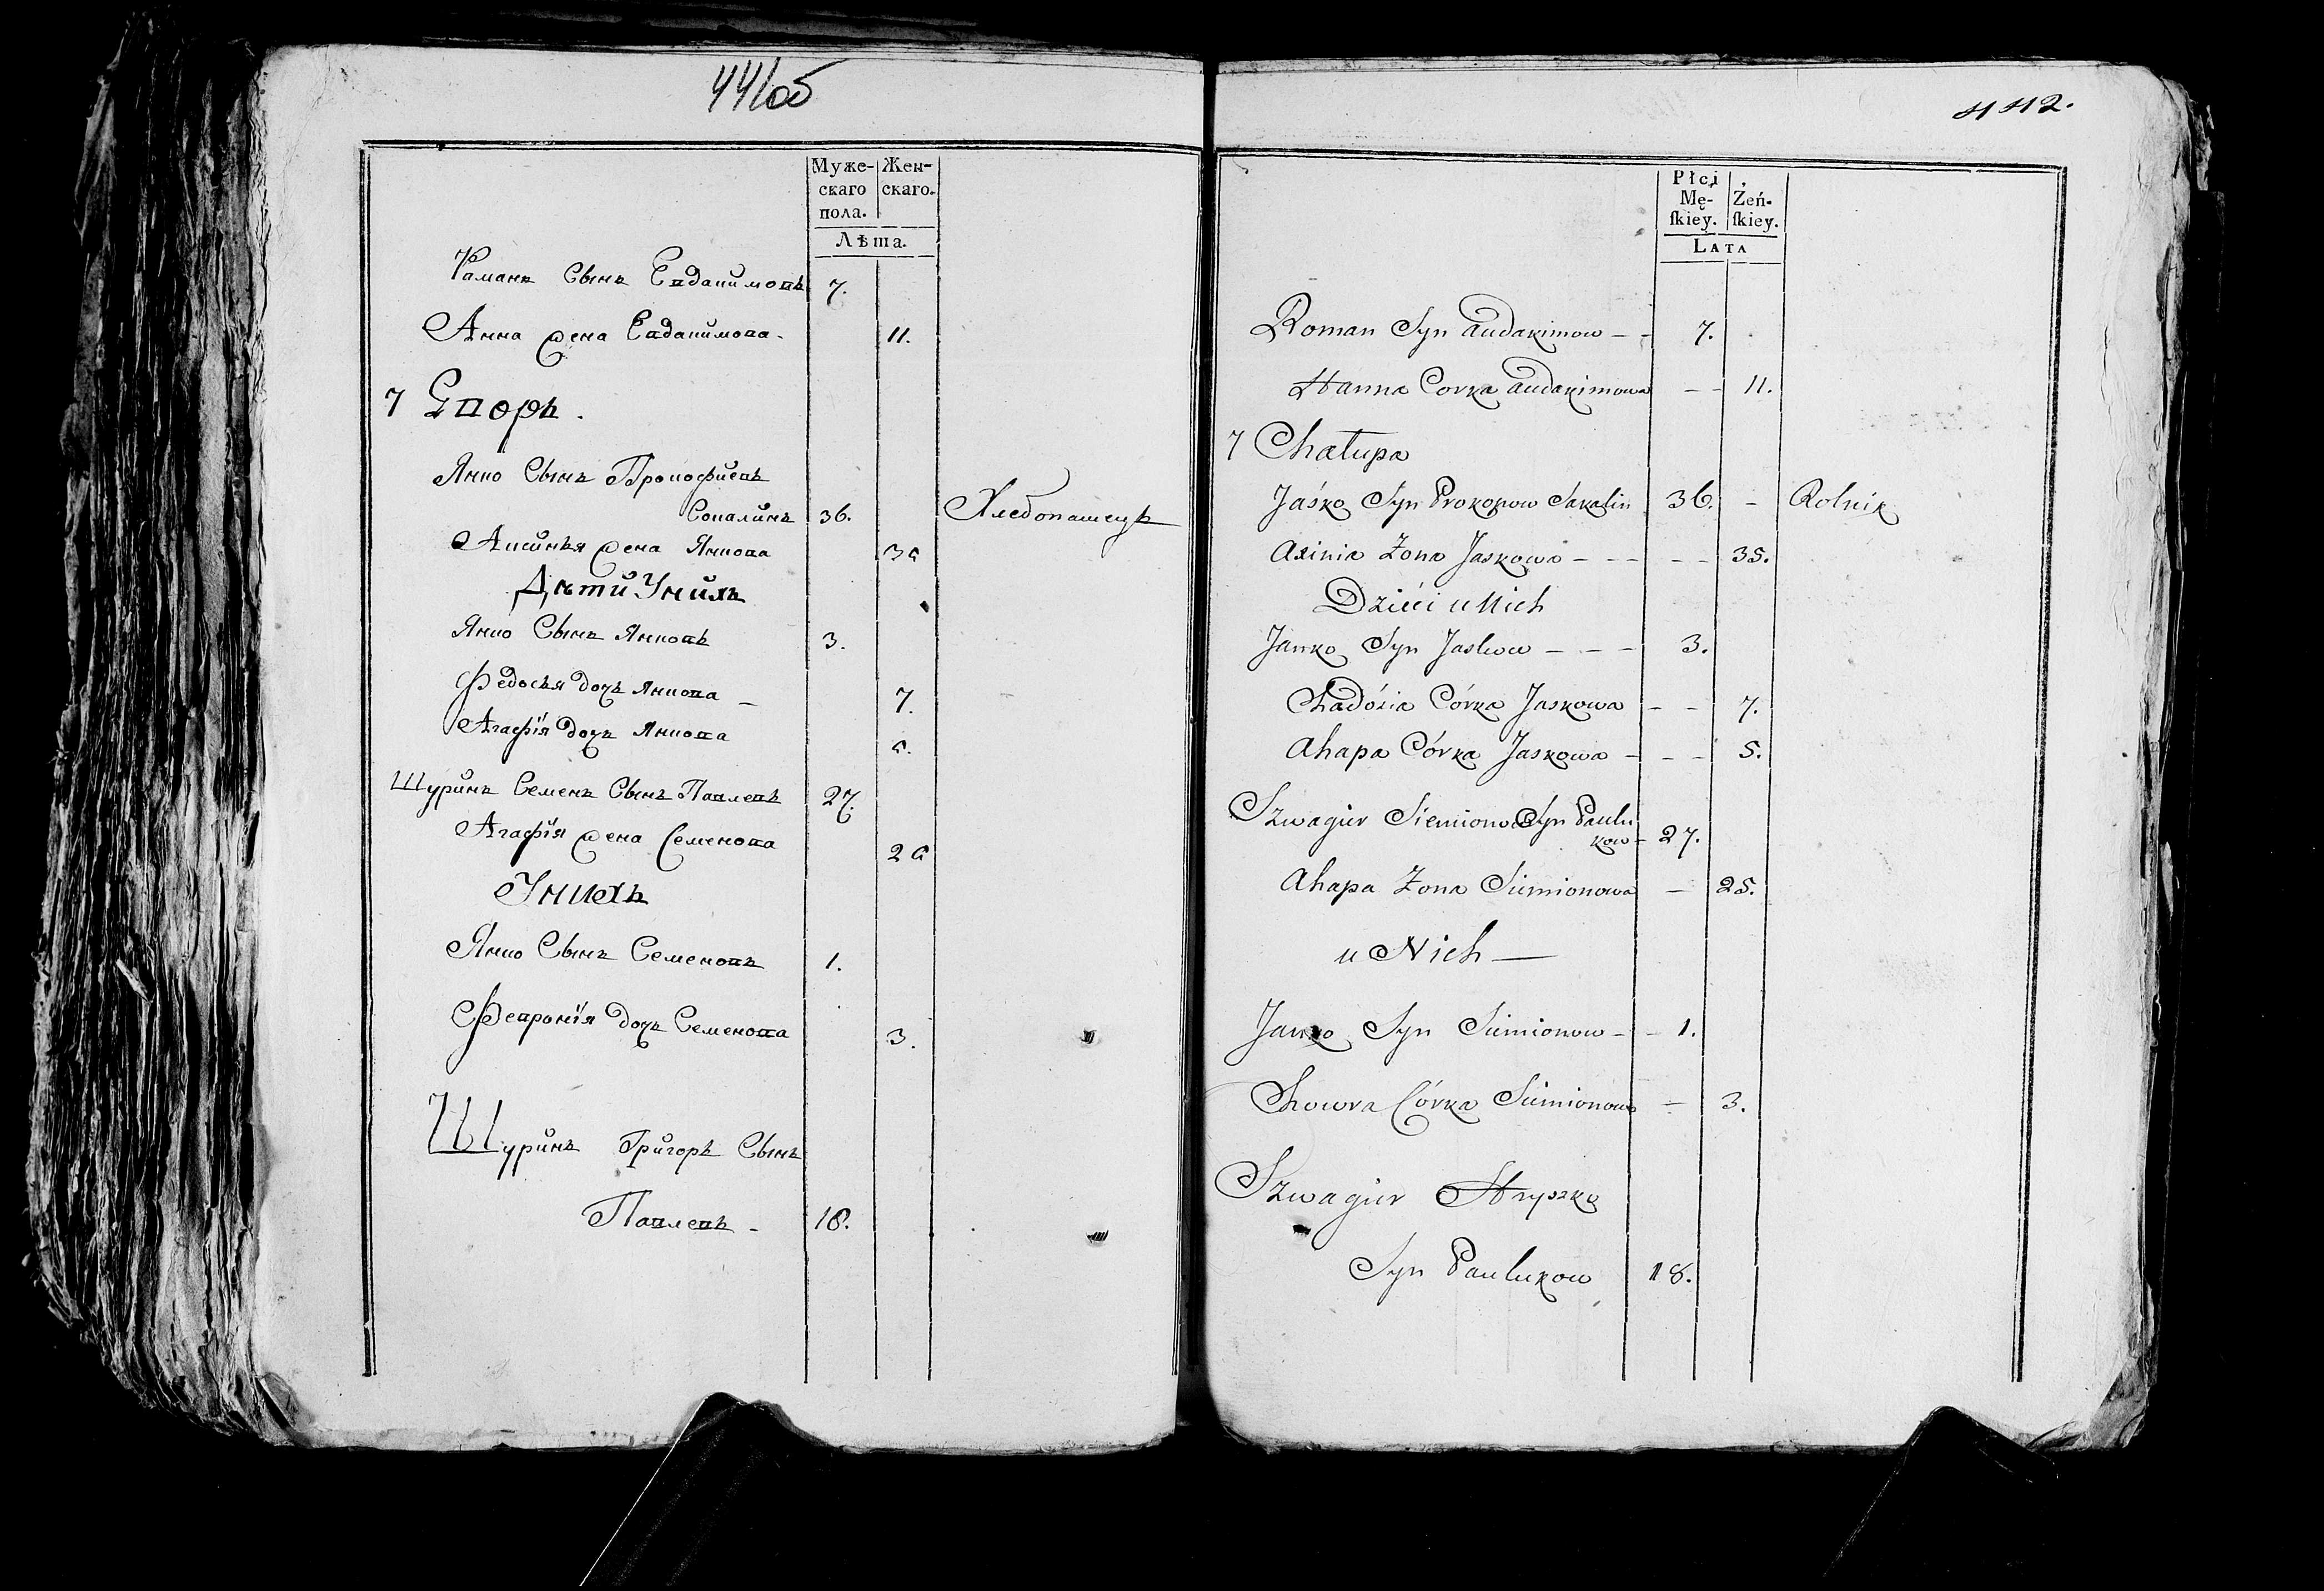 441об
Муже-
скаго
пола.
Жен-
скаго.
Лѣта.
Раманъ Сынъ Евдакимовъ 7.
Анна дочь Евдакимова - 11.
7 Дворъ.
Янко Сынъ Прокофиевъ
Сокалинъ 36. Хлебопашецъ
Аксинья жена Янкова 35
Дѣти У нихъ
Янко Сынъ Янковъ 3.
Федосья дочь Янкова - 7.
Агафія дочь Янкова 5.
Шуринъ Семенъ Сынъ Павлевъ 27.
Агафія жена Семенова 25
У нихъ
Янко Сынъ Семеновъ 1.
Февронія дочь Семенова 3.
Шуринъ Григоръ Сынъ
Павлевъ - 18.
442.
Płci
Mę-
skiey.
Żeń-
skiey.
LATA
Roman Syn Audakimow - - 7.
Hanna Corka Audakimowa - - 11.
7 Chałupa
Jaśko Syn Prokopow Sakalin 36. - Rolnik
Axinia Zona Jaskowa - - - - - 35.
Dzieci u Nich
Janko Syn Jaskow - - - 3.
Chadósia Córka Jaskowa - - 7.
Ahapa Córka Jaskowa - - - 5.
Szwagier Siemion Syn Paulu
kow - 27.
Ahapa Zona Siemionowa - 25.
u Nich —
Janko Syn Siemionow - - 1.
Chowra Córka Siemionowa - 3.
Szwagier Hryszko
Syn Paulukow 18.